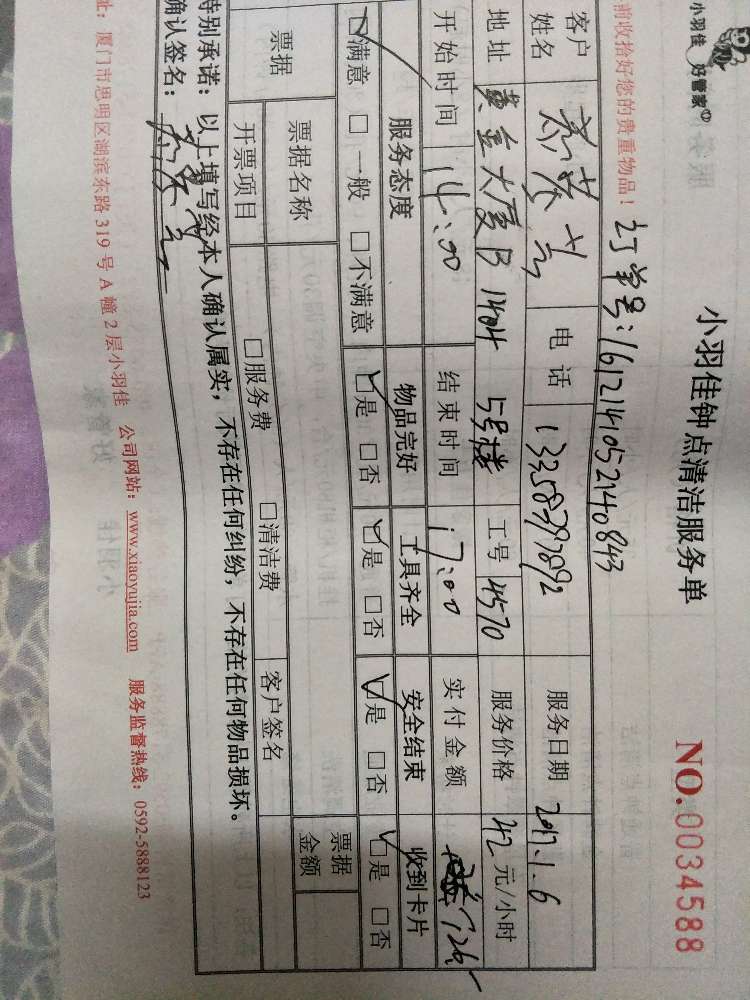 小羽佳 好管家
小羽佳钟点清洁服务单 NO.0034588
前收拾好您的贵重物品! 订单号:1612141052140843
客户姓名 电话 13358397892 服务日期 2017.1.6
地址 黄金大厦B1404 5号楼 工号 4570 服务价格 42元/小时
开始时间 14:00 结束时间 17:00 实付金额 126
服务态度 物品完好 工具齐全 安全结束 收到卡片
☑满意 □一般 □不满意 ☑是 □否 ☑是 □否 ☑是 □否 ☑是 □否
票据 票据名称 票据金额
开票项目 □服务费 □清洁费 客户签名
特别承诺:以上填写经本人确认属实,不存在任何纠纷,不存在任何物品损坏。
确认签名:
址:厦门市思明区湖滨东路319号A幢2层小羽佳 公司网站:www.xiaoyujia.com 服务监督热线:0592-5888123